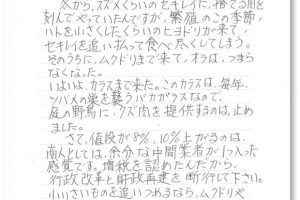 冬から、スズメくらいのセキレイに、捨てる肉を
刻んでやっていたんですが、繁殖のこの季節、
ハトを小さくしたくらいのヒヨドリが来て、
セキレイを追い払って食べ尽くしてしまう。
そのうちに、ムクドリまで来て、オラは、つまら
なくなった。
いよいよ、カラスまで来た。このカラスは、毎年、
ツバメの巣を襲うバカガラスなので、
庭の野鳥に、クズ肉を提供するのは、止め
ました。
さて、値段が8%、10%上がるのは、
商人としては、余分な中間業者が1つ入った
感覚です。増税を認めたんだから、
行政改革と財政再建を断行して下さい。
小さいものを追いつめるなら、ムクドリや